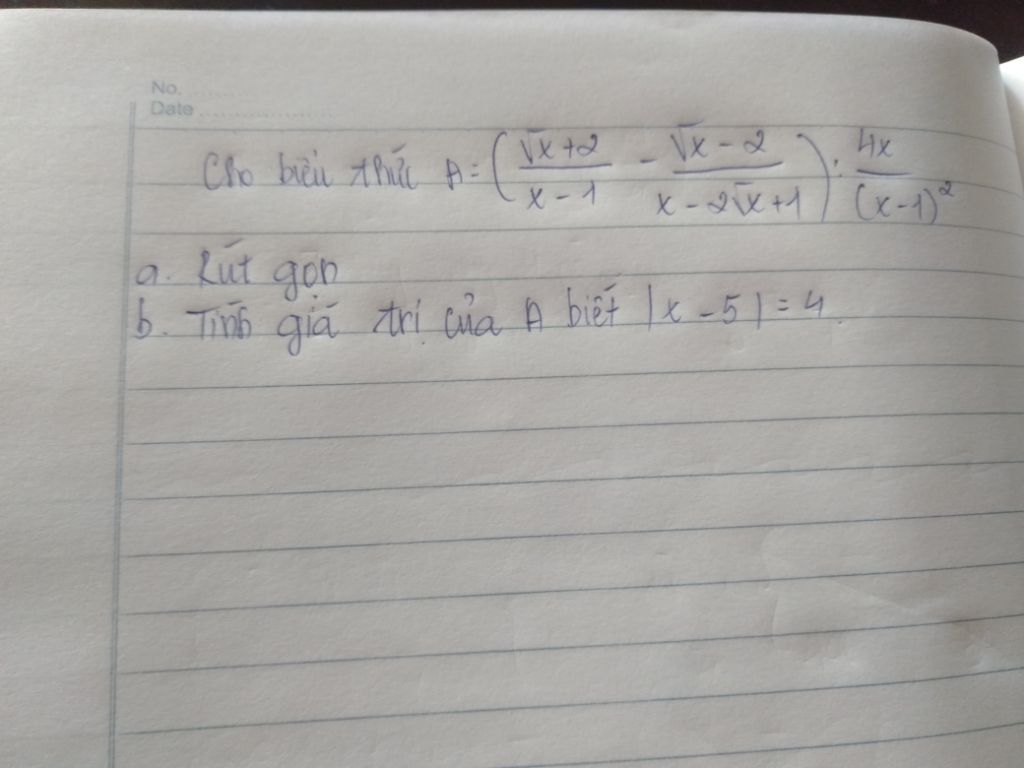 No. ............
Date ......................
Cho biểu thức A = (√x+2 / x-1 - √x-2 / x-2√x+1) : 4x / (x-1)²
a. Rút gọn
b. Tính giá trị của A biết |x-5| = 4.